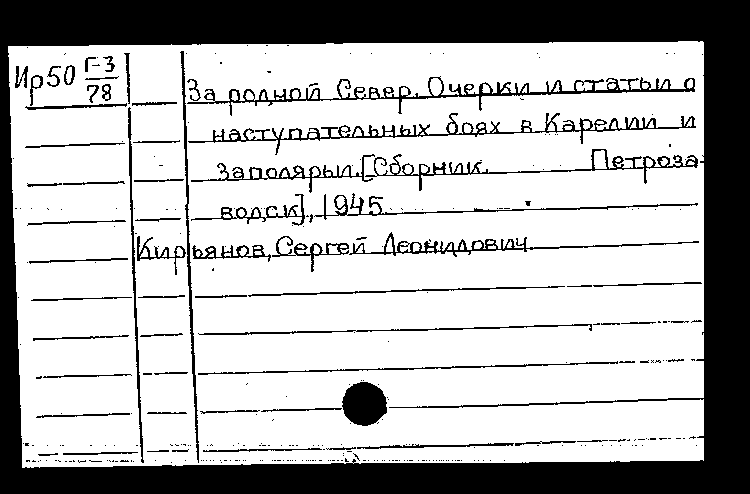 Ир50 Г-3/78
За родной Север. Очерки и статьи о
наступательных боях в Карелии и
Заполярьи.[Сборник. Петроза-
водск], 1945.
Кирьянов, Сергей Леонидович